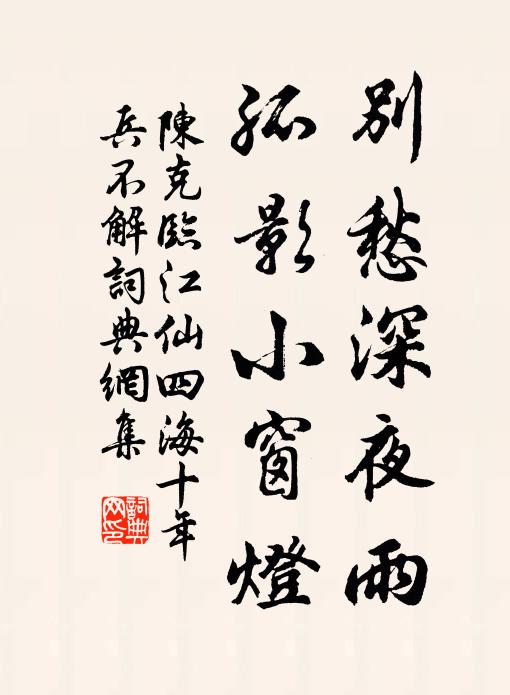 別愁深夜雨
孤影小窗燈
陳克臨江仙四海十年
兵不解詞典網集
詞典網印